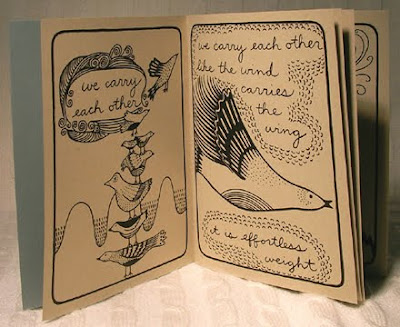 we carry
each other
we carry each other
like the wind
carries
the
wing
it is effortless
weight